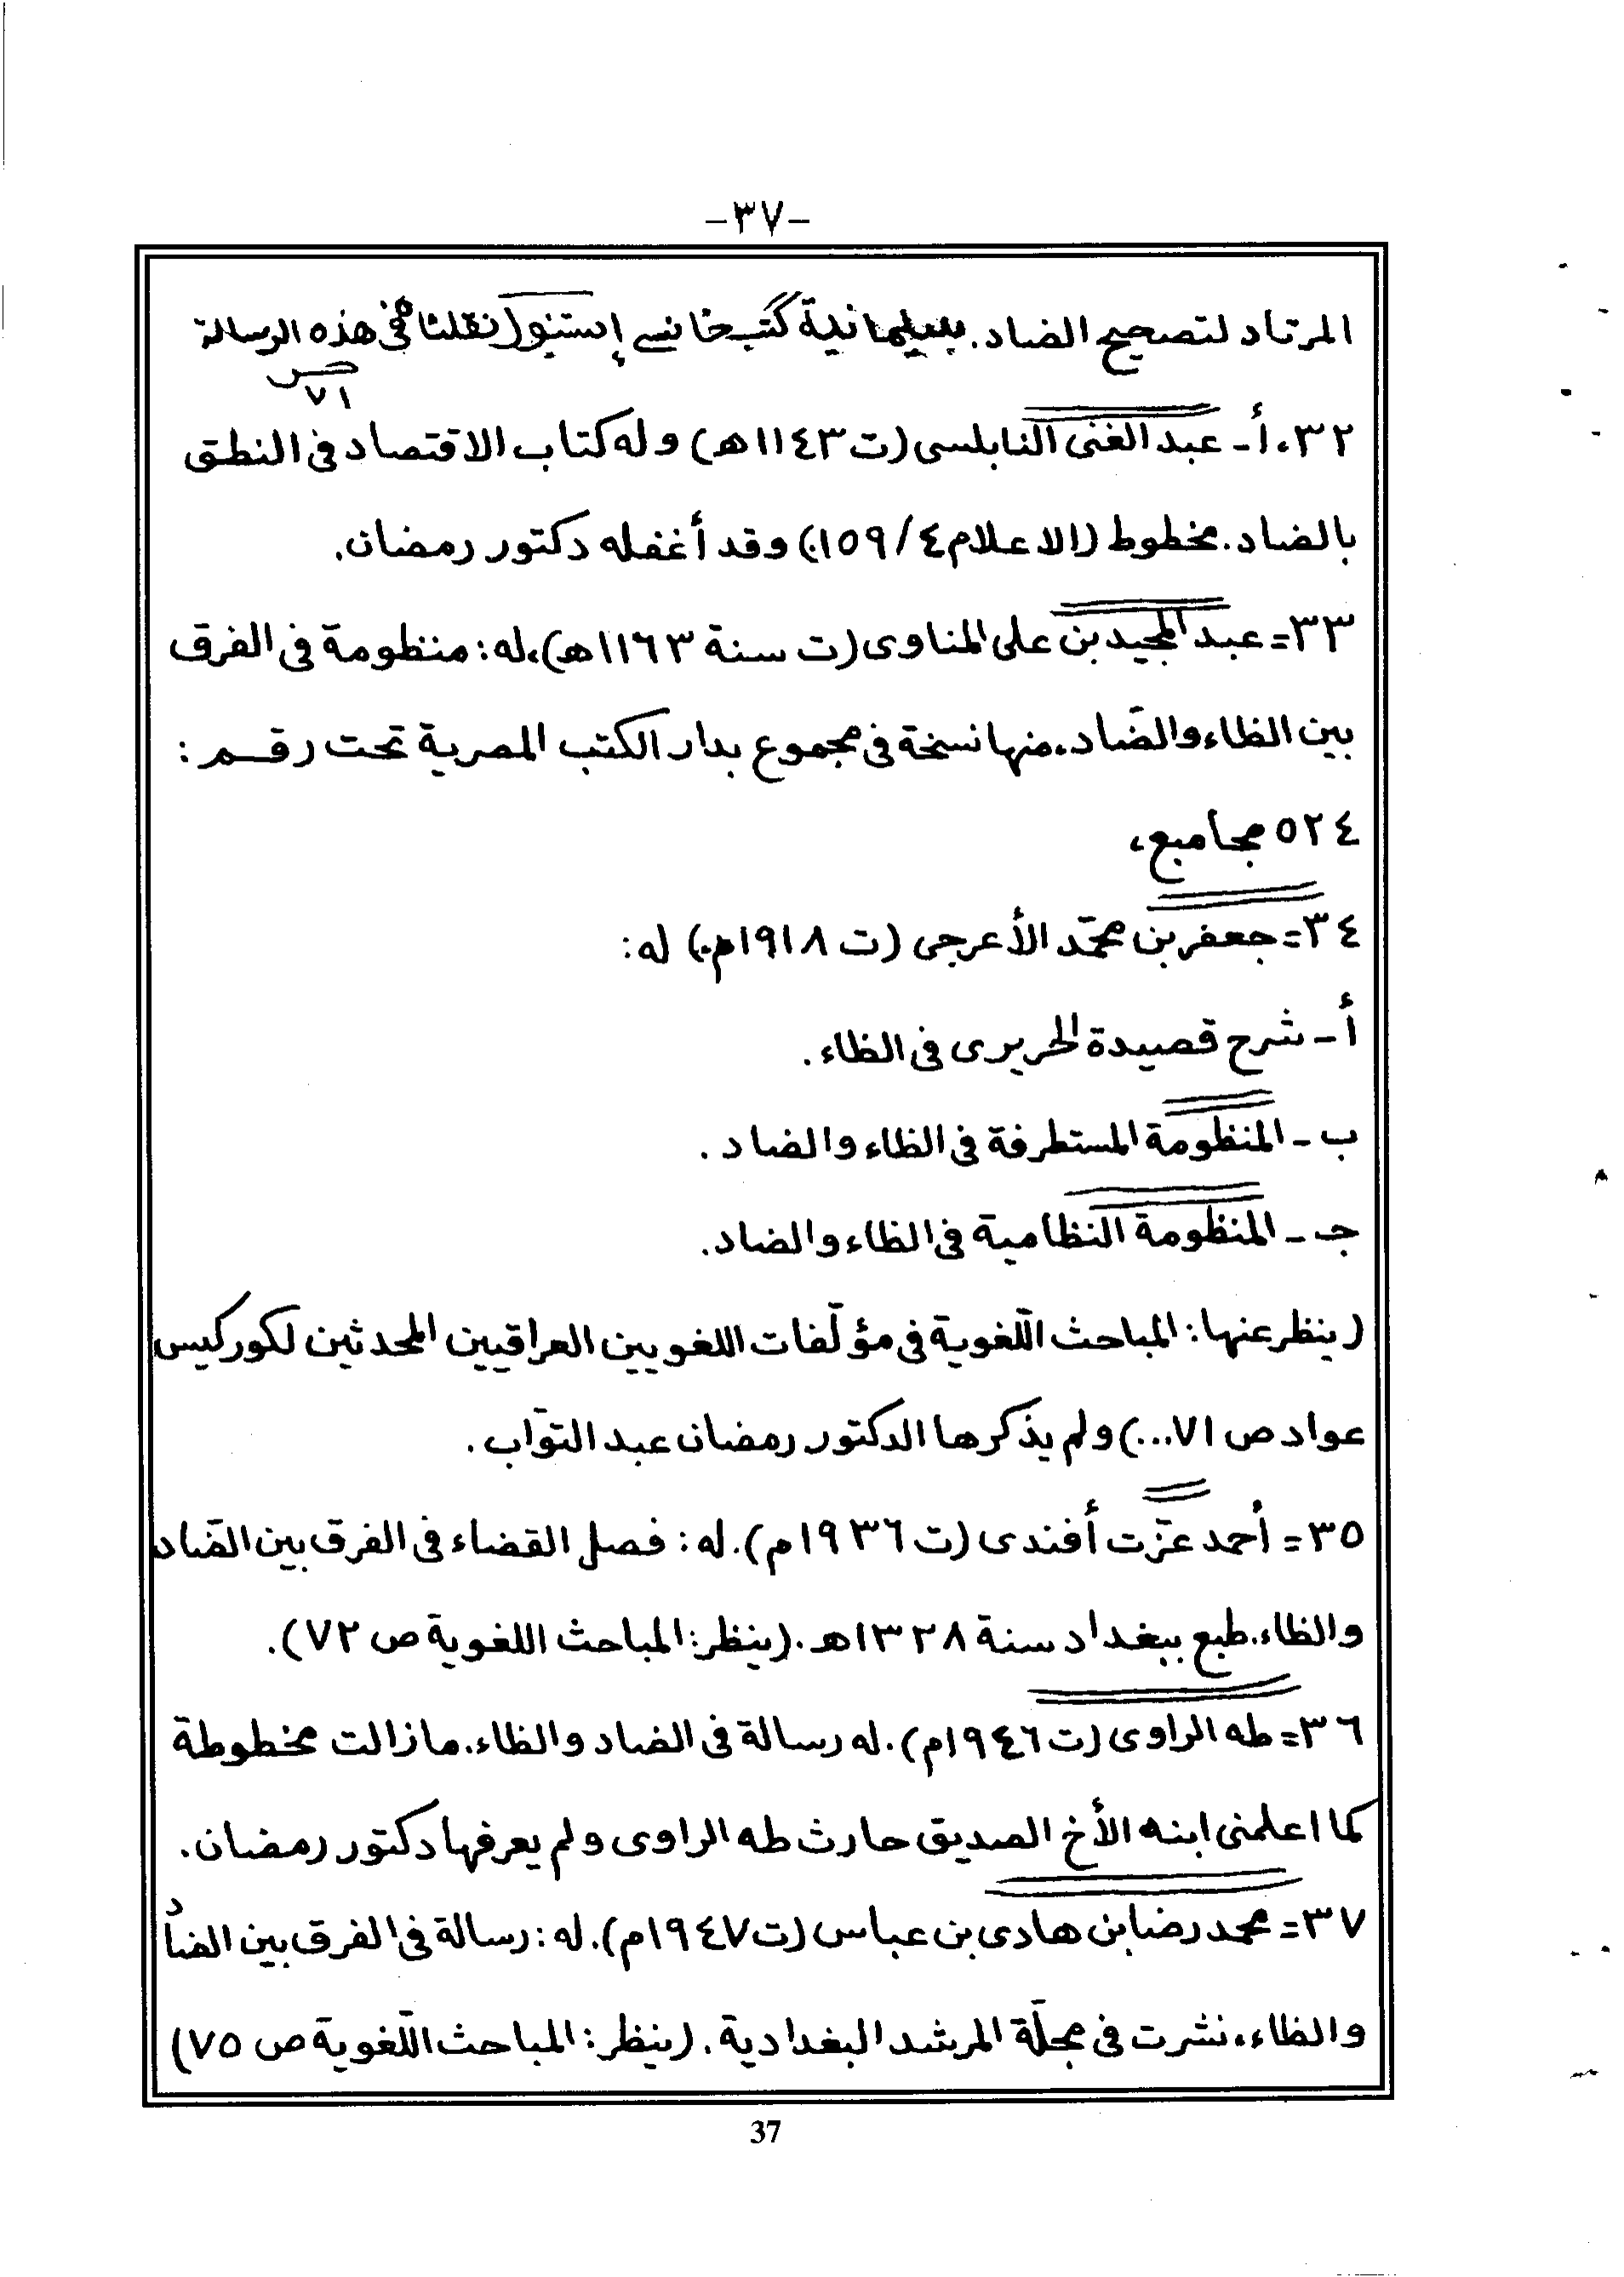 -٣٧-
المرتاد لتصحيح الضاد. بسليمانية كتب خانسي إستنبول نقلنا في هذه الرسالة
ص ٧١
٣٢،أ- عبد الغنى النابلسى (ت ١١٤٣هـ) وله كتاب الاقتصاد فى النطق
بالضاد. مخطوط (الاعلام ٤/ ١٥٩) وقد أغفله دكتور رمضان.
٣٣= عبد المجيد بن على المناوى (ت سنة ١١٦٣هـ)، له: منظومة فى الفرق
بين الظاء والضاد، منها نسخة فى مجموع بدار الكتب المصرية تحت رقم :
٥٢٤ مجاميع،
٣٤= جعفر بن محمّد الأعرجى (ت ١٩١٨م) له:
أ- شرح قصيدة الحريرى فى الظاء .
ب - المنظومة المستطرفة فى الظاء والضاد .
جـ - المنظومة النظامية فى الظاء والضاد.
(ينظر عنها: المباحث اللّغوية فى مؤلّفات اللغويين العراقيين المحدثين لكوركيس
عواد ص ٧١...) ولم يذكرها الدكتور رمضان عبد التوّاب .
٣٥= أحمد عزّت أفندى (ت ١٩٣٦م). له: فصل القضاء فى الفرق بين الضاد
والظاء. طبع ببغداد سنة ١٣٢٨هـ. (ينظر: المباحث اللغوية ص ٧٢).
٣٦= طه الراوى (ت ١٩٤٦م). له رسالة فى الضاد والظاء. مازالت مخطوطة
كما اعلمنى ابنه الأخ الصديق حارث طه الراوى ولم يعرفها دكتور رمضان.
٣٧= محمد رضا بن هادى بن عباس (ت ١٩٤٧م). له: رسالة فى الفرق بين الضاد
والظاء، نشرت فى مجلّة المرشد البغدادية. (ينظر: المباحث اللّغوية ص ٧٥)
37